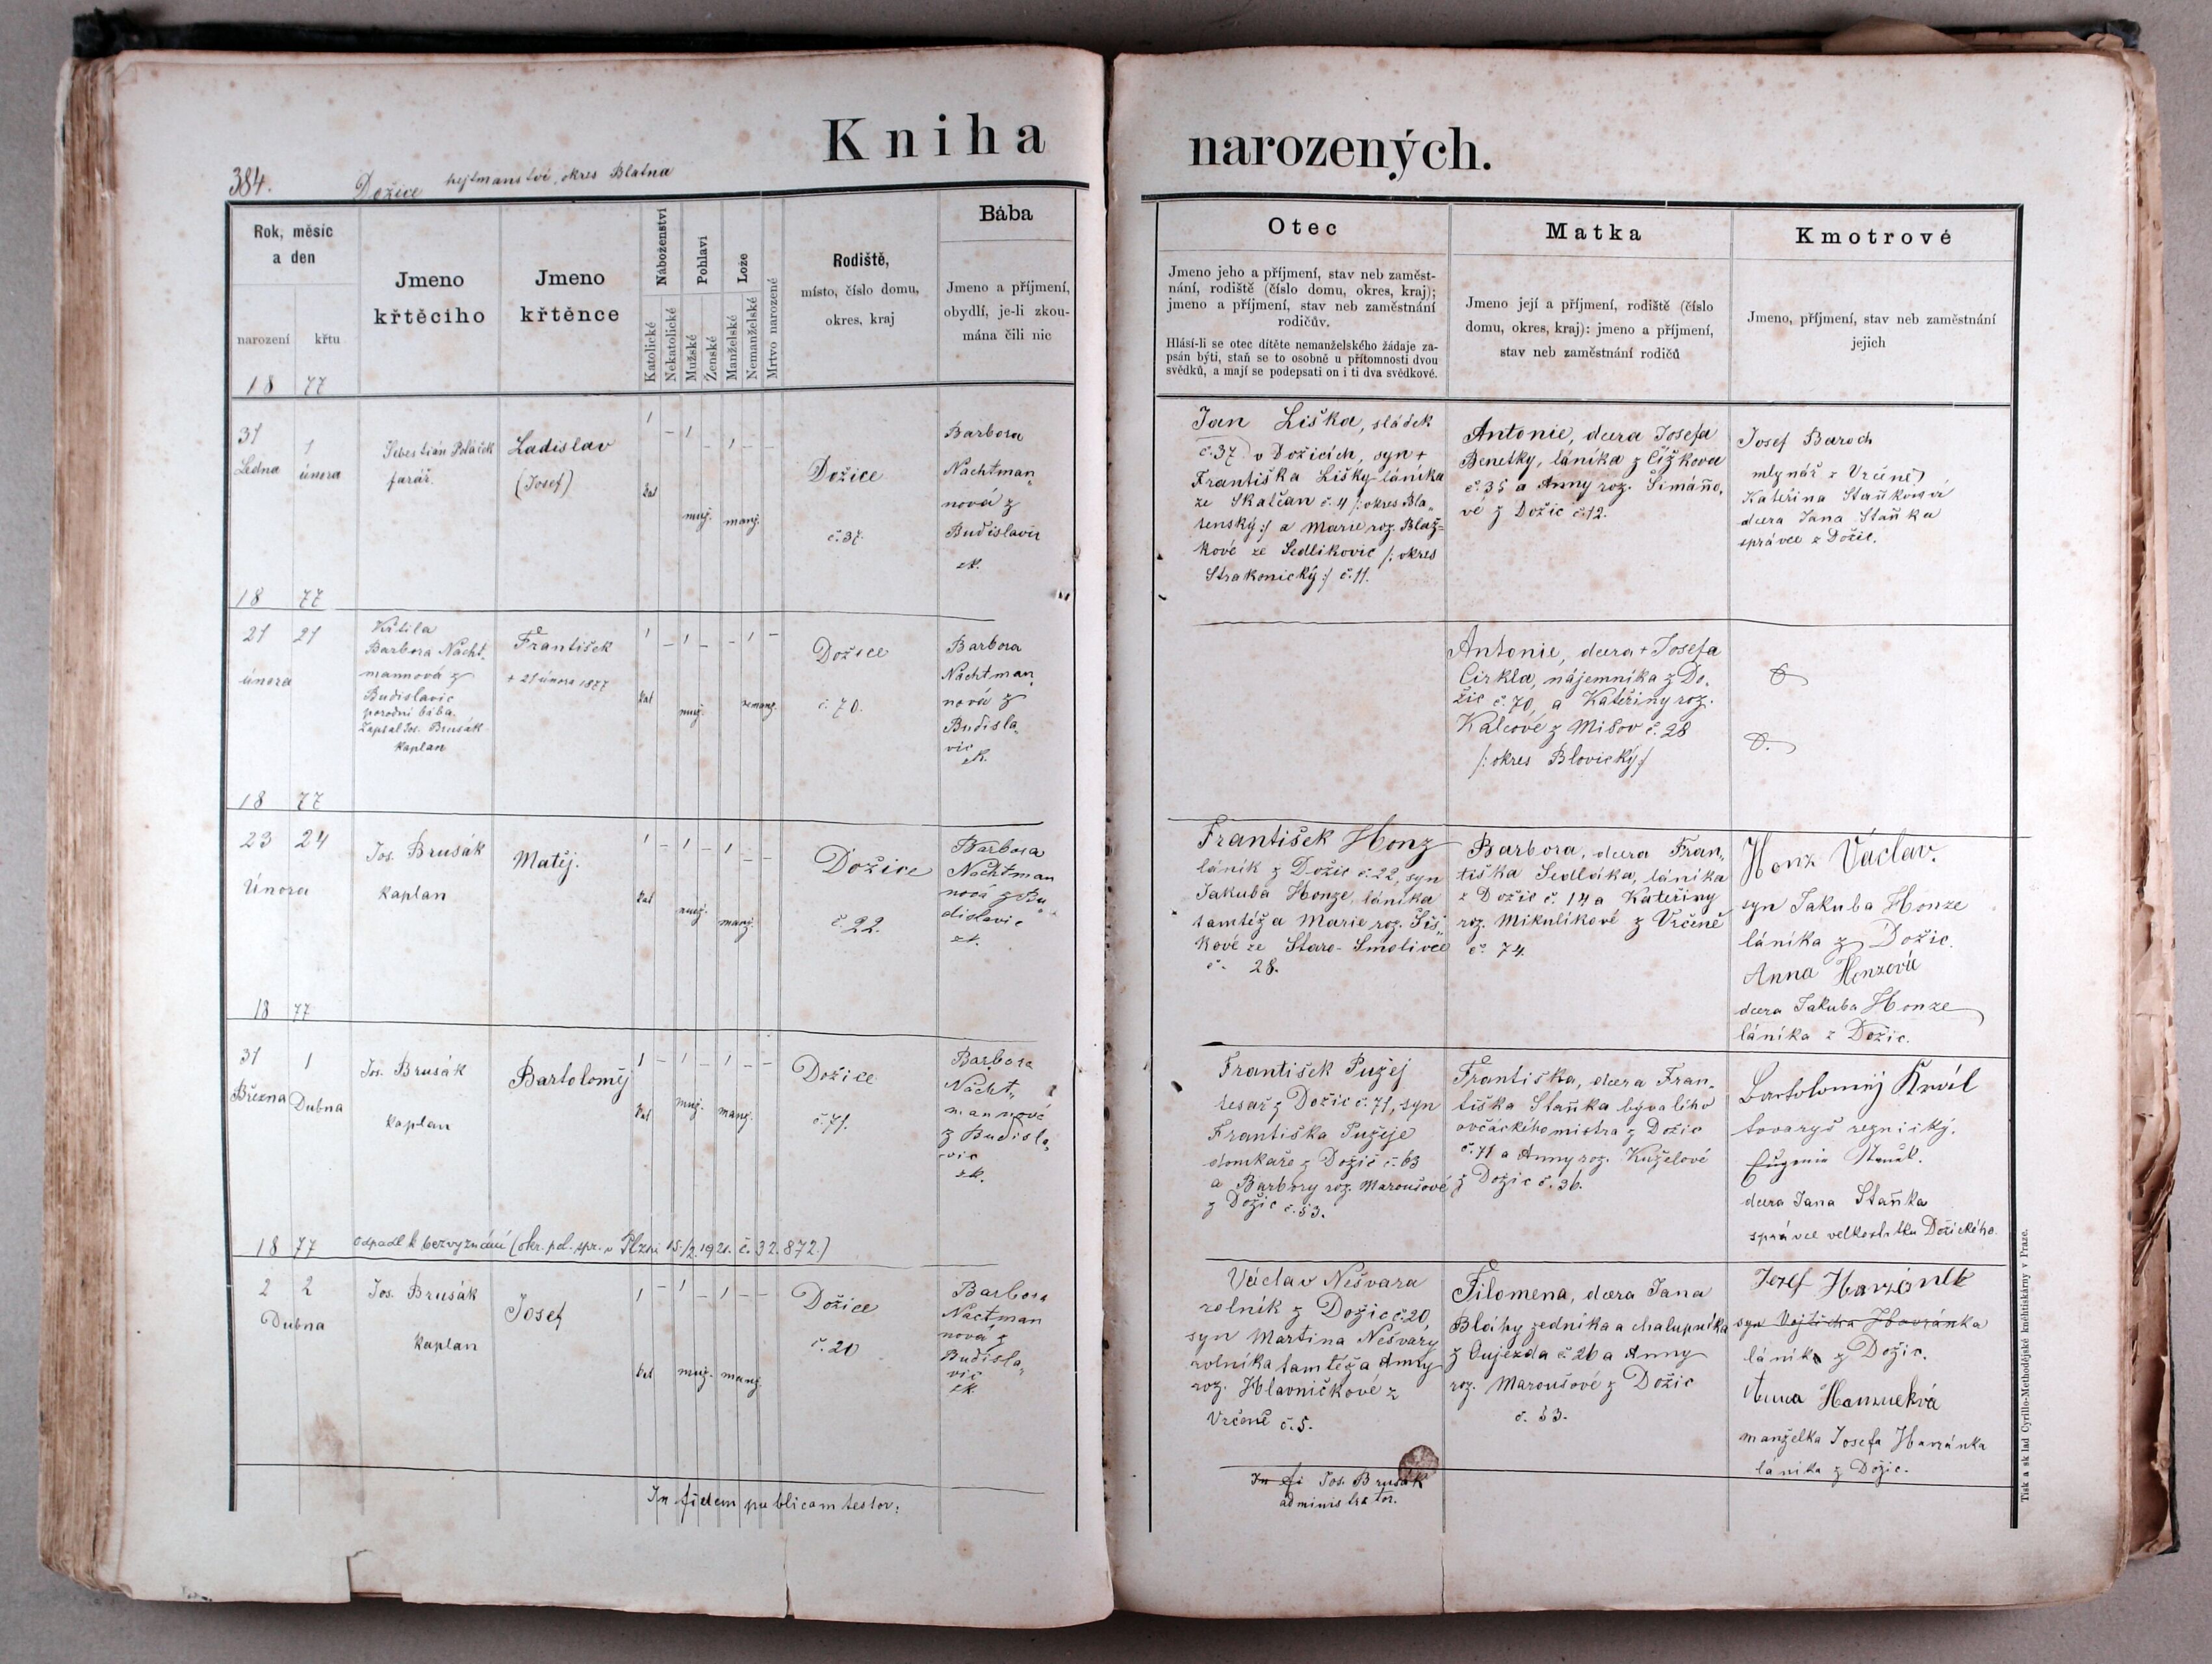 Kniha narozených.
384.
Dožice hejtmanství, okres Blatna
Rok, měsíc
a den
narození křtu
Jmeno
křtěcího
Jmeno
křtěnce
Náboženství
Katolické
Nekatolické
Pohlaví
Mužské
Ženské
Lože
Manželské
Nemanželské
Mrtvo narozené
Rodiště,
místo, číslo domu,
okres, kraj
Bába
Jmeno a příjmení,
obydlí, je-li zkou-
mána čili nic
Otec
Jmeno jeho a příjmení, stav neb zaměst-
nání, rodiště (číslo domu, okres, kraj);
jmeno a příjmení, stav neb zaměstnání
rodičův.
Hlásí-li se otec dítěte nemanželského žádaje za-
psán býti, staň se to osobně u přítomnosti dvou
svědků, a mají se podepsati on i ti dva svědkové.
Matka
Jmeno její a příjmení, rodiště (číslo
domu, okres, kraj): jmeno a příjmení,
stav neb zaměstnání rodičů
Kmotrové
Jmeno, příjmení, stav neb zaměstnání
jejich
18 77
31 1
Ledna února
Šebestián Poláček
farář.
Ladislav
(Josef)
kat
muž.
manž.
Dožice
č. 37.
Barbora
Nachtman„
nová z
Budislavic
zk.
Jan Liška, sládek
č. 37 v Dožicích, syn +
Františka Lišky láníka
ze Skalčan č. 4 /: okres Bla„
tenský :/ a Marie roz. Blaž-
kové ze Sedlikovic /: okres
Strakonický :/ č. 11.
Antonie, dcera Josefa
Benetky, láníka z Čížkova
č. 35 a Anny roz. Šimáňo„
vé z Dožic č. 12.
Josef Baroch
mlynář z Vrčeně
Kateřina Staňkova
dcera Jana Staňka
správce z Dožic.
18 77
21 21
února
Křtila
Barbora Nacht„
mannová z
Budislavic
porodní bába.
Zapsal Jos. Brusák
kaplan
František
+ 21 února 1877
kat
muž.
nemanž.
Dožice
č. 70.
Barbora
Nachtman„
nová z
Budisla„
vic
zk.
Antonie, dcera + Josefa
Cirkla, nájemníka z Do„
žic č. 70, a Kateřiny roz.
Kalcové z Mišov č. 28
/: okres Blovický :/
18 77
23 24
Února
Jos. Brusák
kaplan
Matěj.
kat
muž.
manž.
Dožice
č. 22.
Barbora
Nachtman
nová z Bu„
dislavic
zk.
František Honz
láník z Dožic č. 22, syn
Jakuba Honze, láníka
tamtéž a Marie roz. Šiš„
kové ze Staro-Smolivec
č. 28.
Barbora, dcera Fran„
tiška Sedláka, láníka
z Dožic č. 14 a Kateřiny
roz. Mikulíkové z Vrčeně
č. 74.
Honz Václav.
syn Jakuba Honze
láníka z Dožic.
Anna Honzová
dcera Jakuba Honze
láníka z Dožic.
18 77
31 1
Března Dubna
Jos. Brusák
kaplan
Bartoloměj
kat
muž.
manž.
Dožice
č. 71.
Barbora
Nacht„
mannové
z Budisla„
vic
zk.
František Pužej
tesař z Dožic č. 71, syn
Františka Pužeje
domkaře z Dožic č. 63
a Barbory roz. Maroušové
z Dožic č. 53.
Františka, dcera Fran„
tiška Staňka bývalého
ovčáckého mistra z Dožic
č. 71 a Anny roz. Kuželové
z Dožic č. 36.
Bartolomij Král
tovaryš řeznický.
Eugenie
dcera Jana Staňka
správce velkostatku Dožického
odpadl k bezvyznání (okr. pol. spr. v Plzni 15./2. 1921. č. 32.872.)
18 77
2 2
Dubna
Jos. Brusák
kaplan
Josef
kat
muž.
manž.
Dožice
č. 20
Barbora
Nactman
nová z
Budisla„
vic
zk.
Václav Nešvara
rolník z Dožic č. 20,
syn Martina Nešvary
rolníka tamtéž a Anny
roz. Hlavničkové z
Vrčeně č. 5.
Filomena, dcera Jana
Bláhy zedníka a chalupníka
z Oujezda č. 26 a Anny
roz. Maroušové z Dožic
č. 53.
Jozef Havránek
syn Vojtěcha Havránka
láník z Dožic.
Anna
manželka Josefa Havránka
láníka z Dožic.
In fidem publicam testor:
In fi Jos. Brusák
administrator.
Tisk a sklad Cyrillo-Methodějské knihtiskárny v Praze.